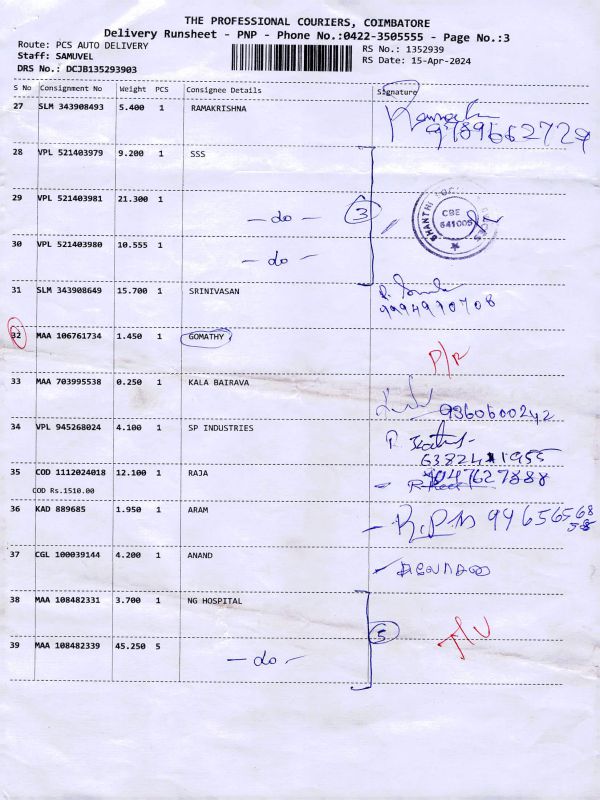 THE PROFESSIONAL COURIERS, COIMBATORE
Delivery Runsheet - PNP - Phone No.:0422-3505555 - Page No.:3
Route: PCS AUTO DELIVERY
RS No.: 1352939
Staff: SAMUVEL
RS Date: 15-Apr-2024
DRS No.: DCJB135293903
S No Consignment No Weight PCS Consignee Details Signature
27 SLM 343908493 5.400 1 RAMAKRISHNA
9789662729
28 VPL 521403979 9.200 1 SSS
29 VPL 521403981 21.300 1 - do - 3
SHANTHI CBE 641005
30 VPL 521403980 10.555 1 - do -
31 SLM 343908649 15.700 1 SRINIVASAN
9994970708
32 MAA 106761734 1.450 1 GOMATHY P/R
33 MAA 703995538 0.250 1 KALA BAIRAVA
9360600242
34 VPL 945268024 4.100 1 SP INDUSTRIES
35 COD 1112024018 12.100 1 RAJA
COD Rs.1510.00
36 KAD 889685 1.950 1 ARAM
37 CGL 100039144 4.200 1 ANAND
38 MAA 108482331 3.700 1 NG HOSPITAL
5
39 MAA 108482339 45.250 5 - do -